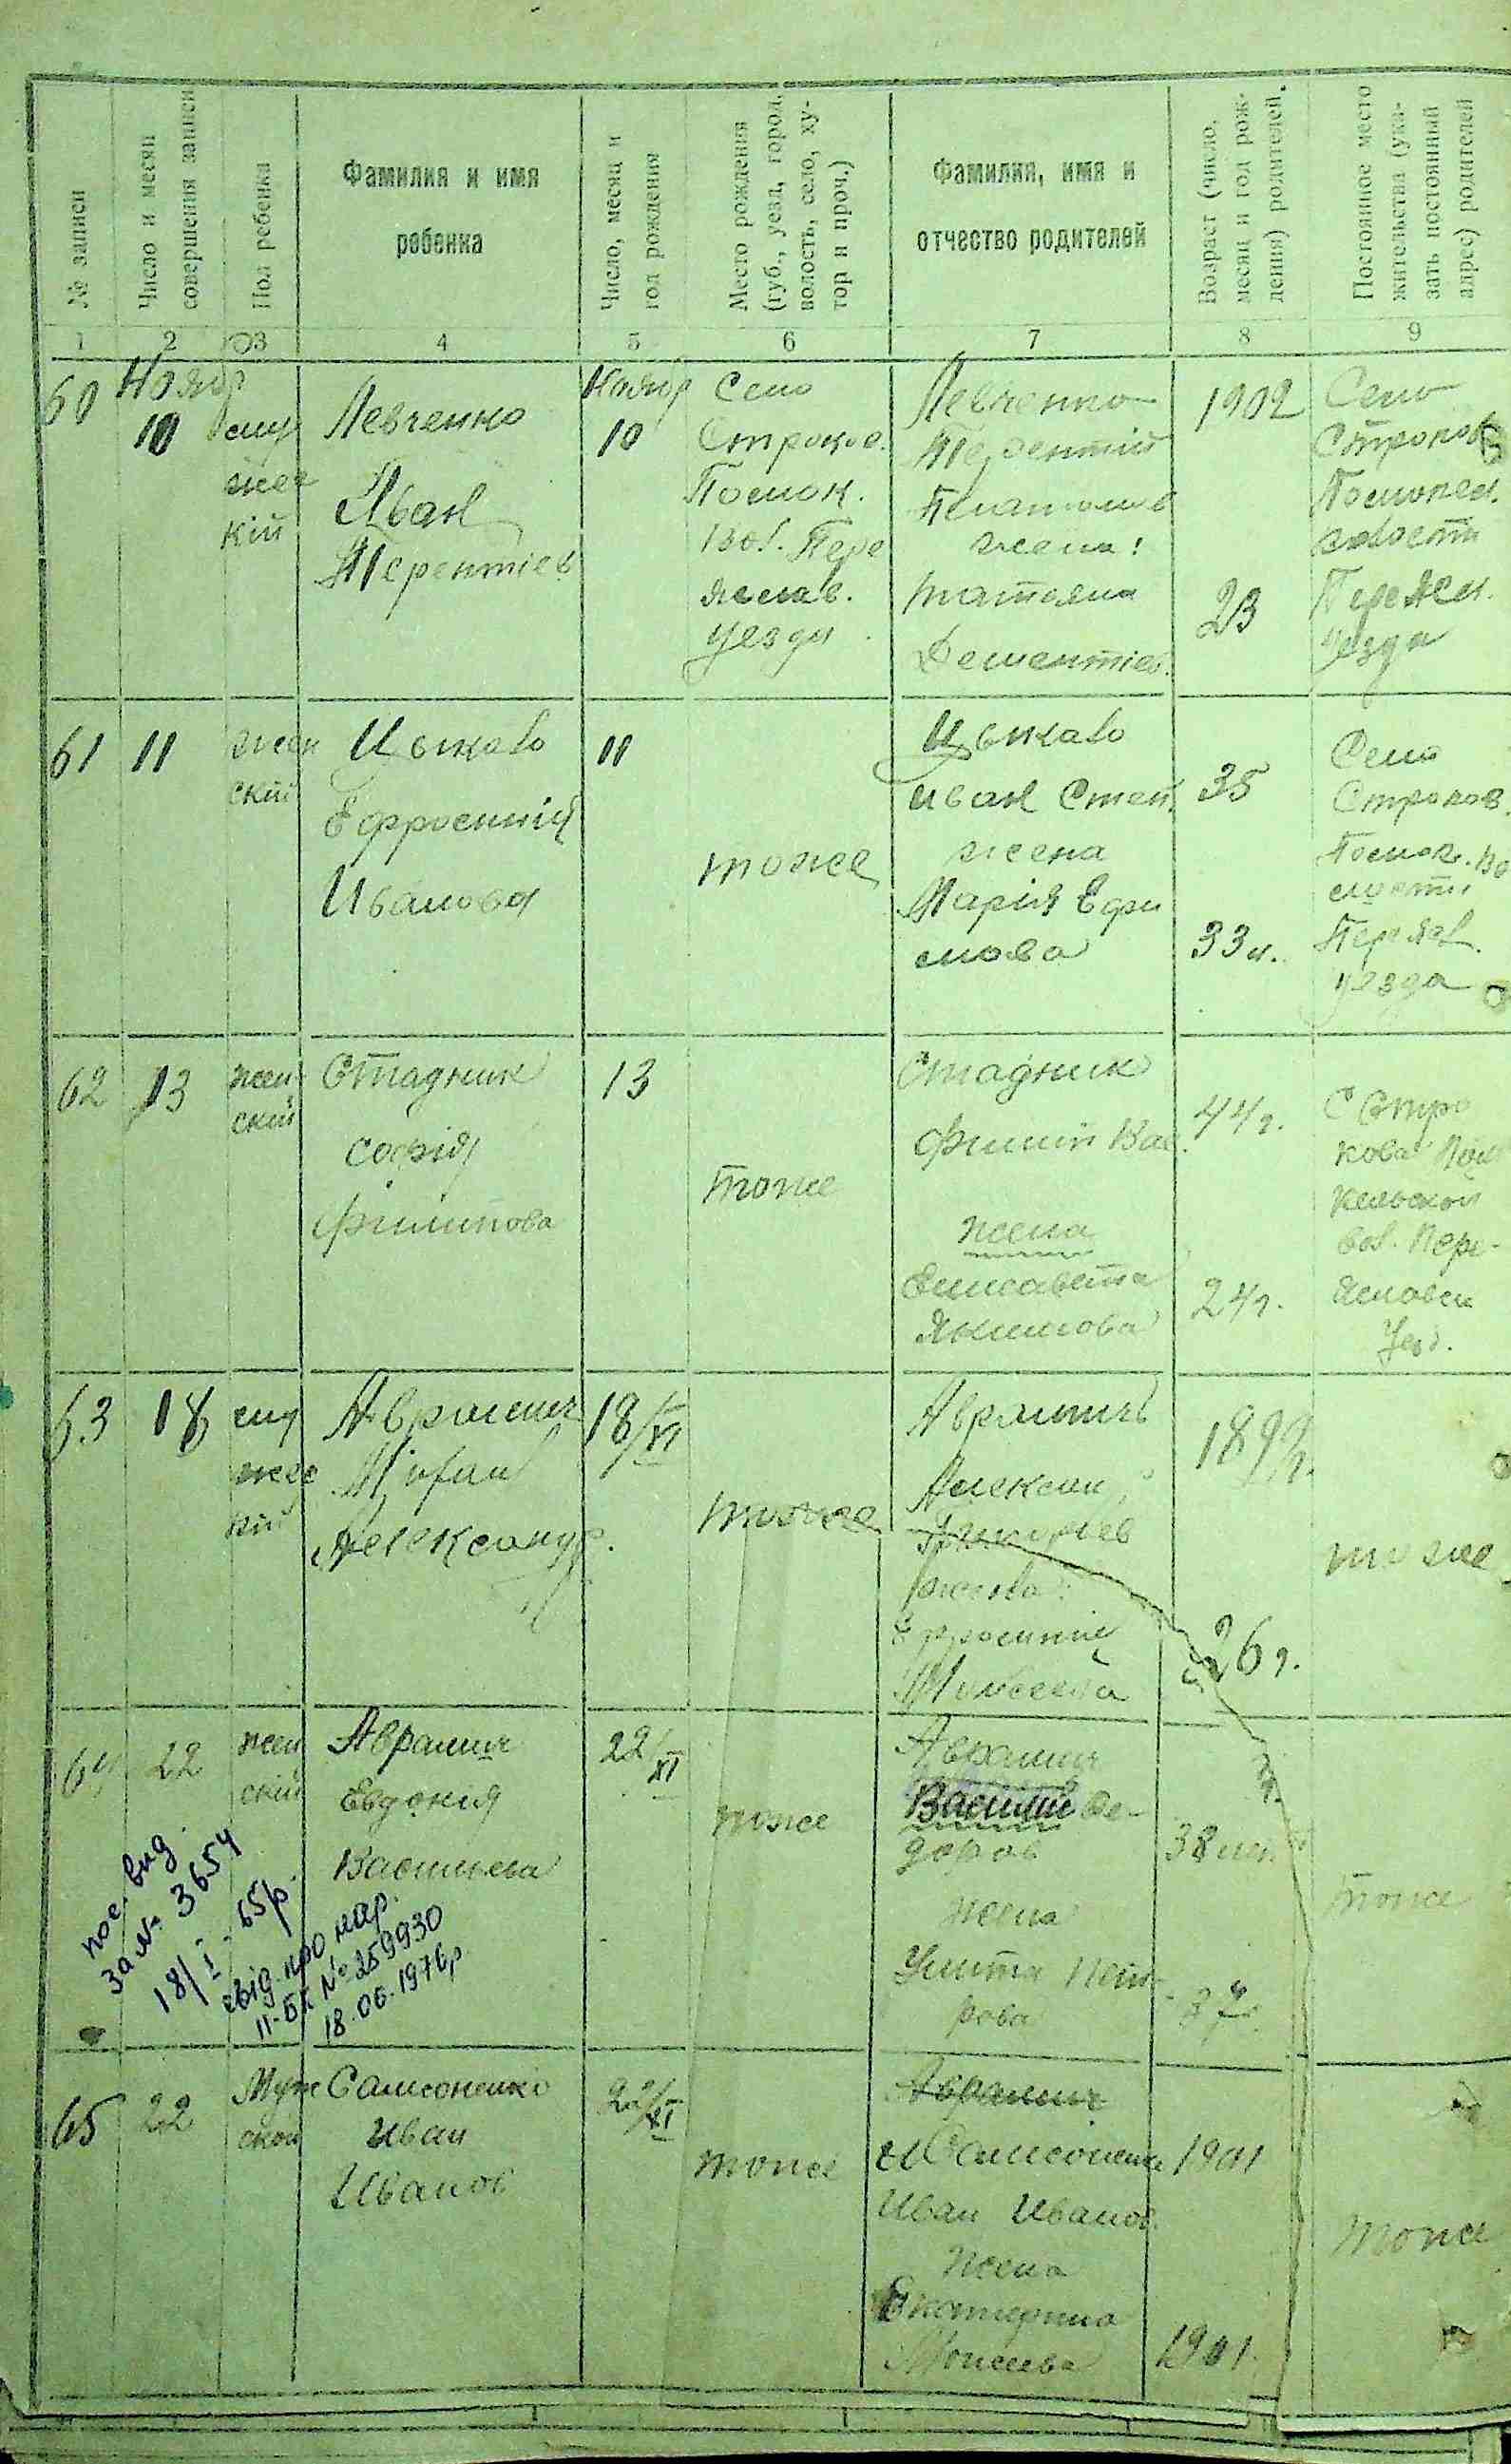 № записи
Число и месяц
совершения записи
Пол ребенка
Фамилия и имя
ребенка
Число, месяц и
год рождения
Место рождения
(губ., уезд, город,
волость, село, ху-
тор и проч.)
Фамилия, имя и
отчество родителей
Возраст (число,
месяц и год рож-
дения) родителей.
Постоянное место
жительства (ука-
зать постоянный
адрес) родителей
1 2 3 4 5 6 7 8 9
60
Ноябр
10
муж
ск
кій
Левченко
Иван
Терентіев
Ноябр
10
Село
Строков.
Помок.
вол. Пере
яслав.
уезда
Левченко
Терентій
Платонов
жена:
Татьяна
Дементіев.
1902
23
Село
Строков
Помокел.
волости
Переясл.
уезда
61
11
жен
скій
Цыкало
Ефросинія
Иванова
11
тоже
Цыкало
Иван Степ.
жена
Марія Ефи
мова
35
33 л.
Село
Строков.
Помок. во
лости
Переяс.
уезда
62
13
жен-
скій
Стадник
Софія
Филипова
13
тоже
Стадник
Филип Вас.
жена
Елисавета
Якимова
44 г.
24 г.
С Стро
кова Пом
кельской
вол. Пере-
яславск
Уезд.
63
18
муж
ск
кій
Аврамич
Александр.
18/XI
тоже
Аврамичъ
Алексан
Григорьев
жена:
Ефросинія
Моисеева
26 г.
тоже
64
22
жен
скій
Аврамич
Евдокия
Васильева
22/XI
тоже
Аврамич
Василий Фе-
доров
жена
Улита Пет-
рова
38 лет
37
тоже
пос. вид.
за № 3654
18/I-65р.
свід. про нар.
II-БК № 259930
18.06.1976р
65
22
Муж
ской
Самсоненко
Иван
Иванов
22/XI
тоже
Аврамич
Самсоненко
Иван Иванов.
жена
Екатерина
Моисеева
1901
1901
тоже